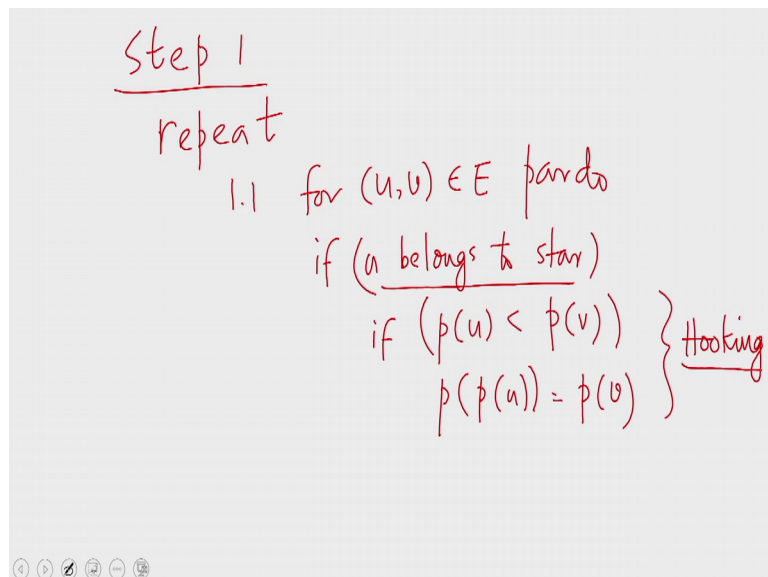 step 1
repeat
1.1 for (u,v) ∈ E pardo
if (u belongs to star)
if (p(u) < p(v))
p(p(u)) = p(v)
Hooking